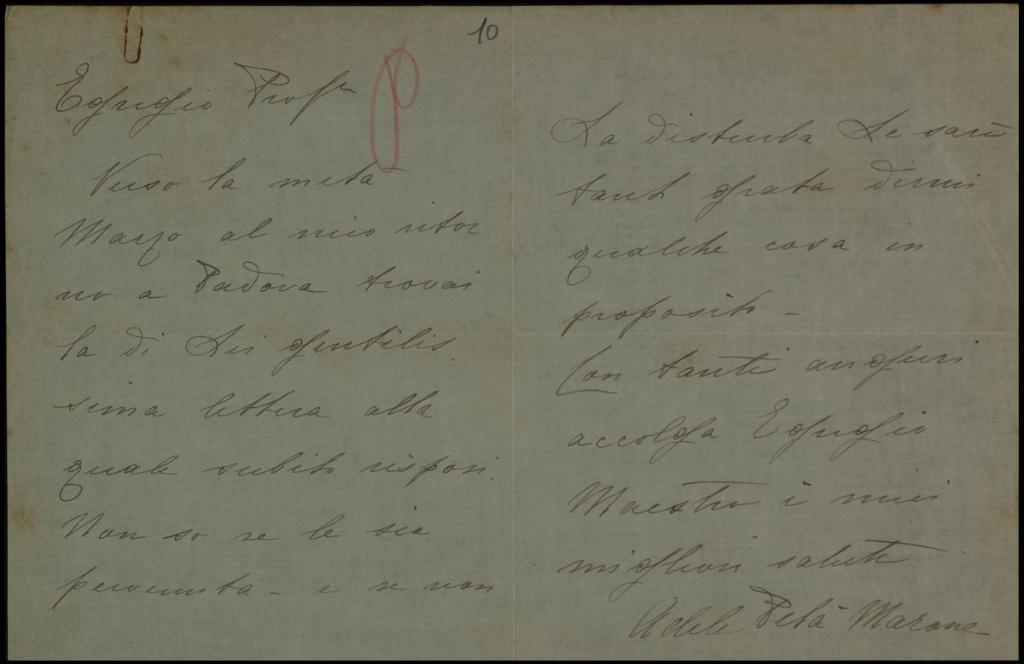 10
Egregio Prof.r
Verso la metà
Marzo al mio ritor
no a Padova trovai
la di Lei gentilis
sima lettera alla
quale subito risposi.
Non so se le sia
pervenuta - e se non
La disturba Le sarei
tanto grata dirmi
qualche cosa in
proposito -
Con tanti auguri
accolga Egregio
Maestro i miei
migliori saluti
Adele